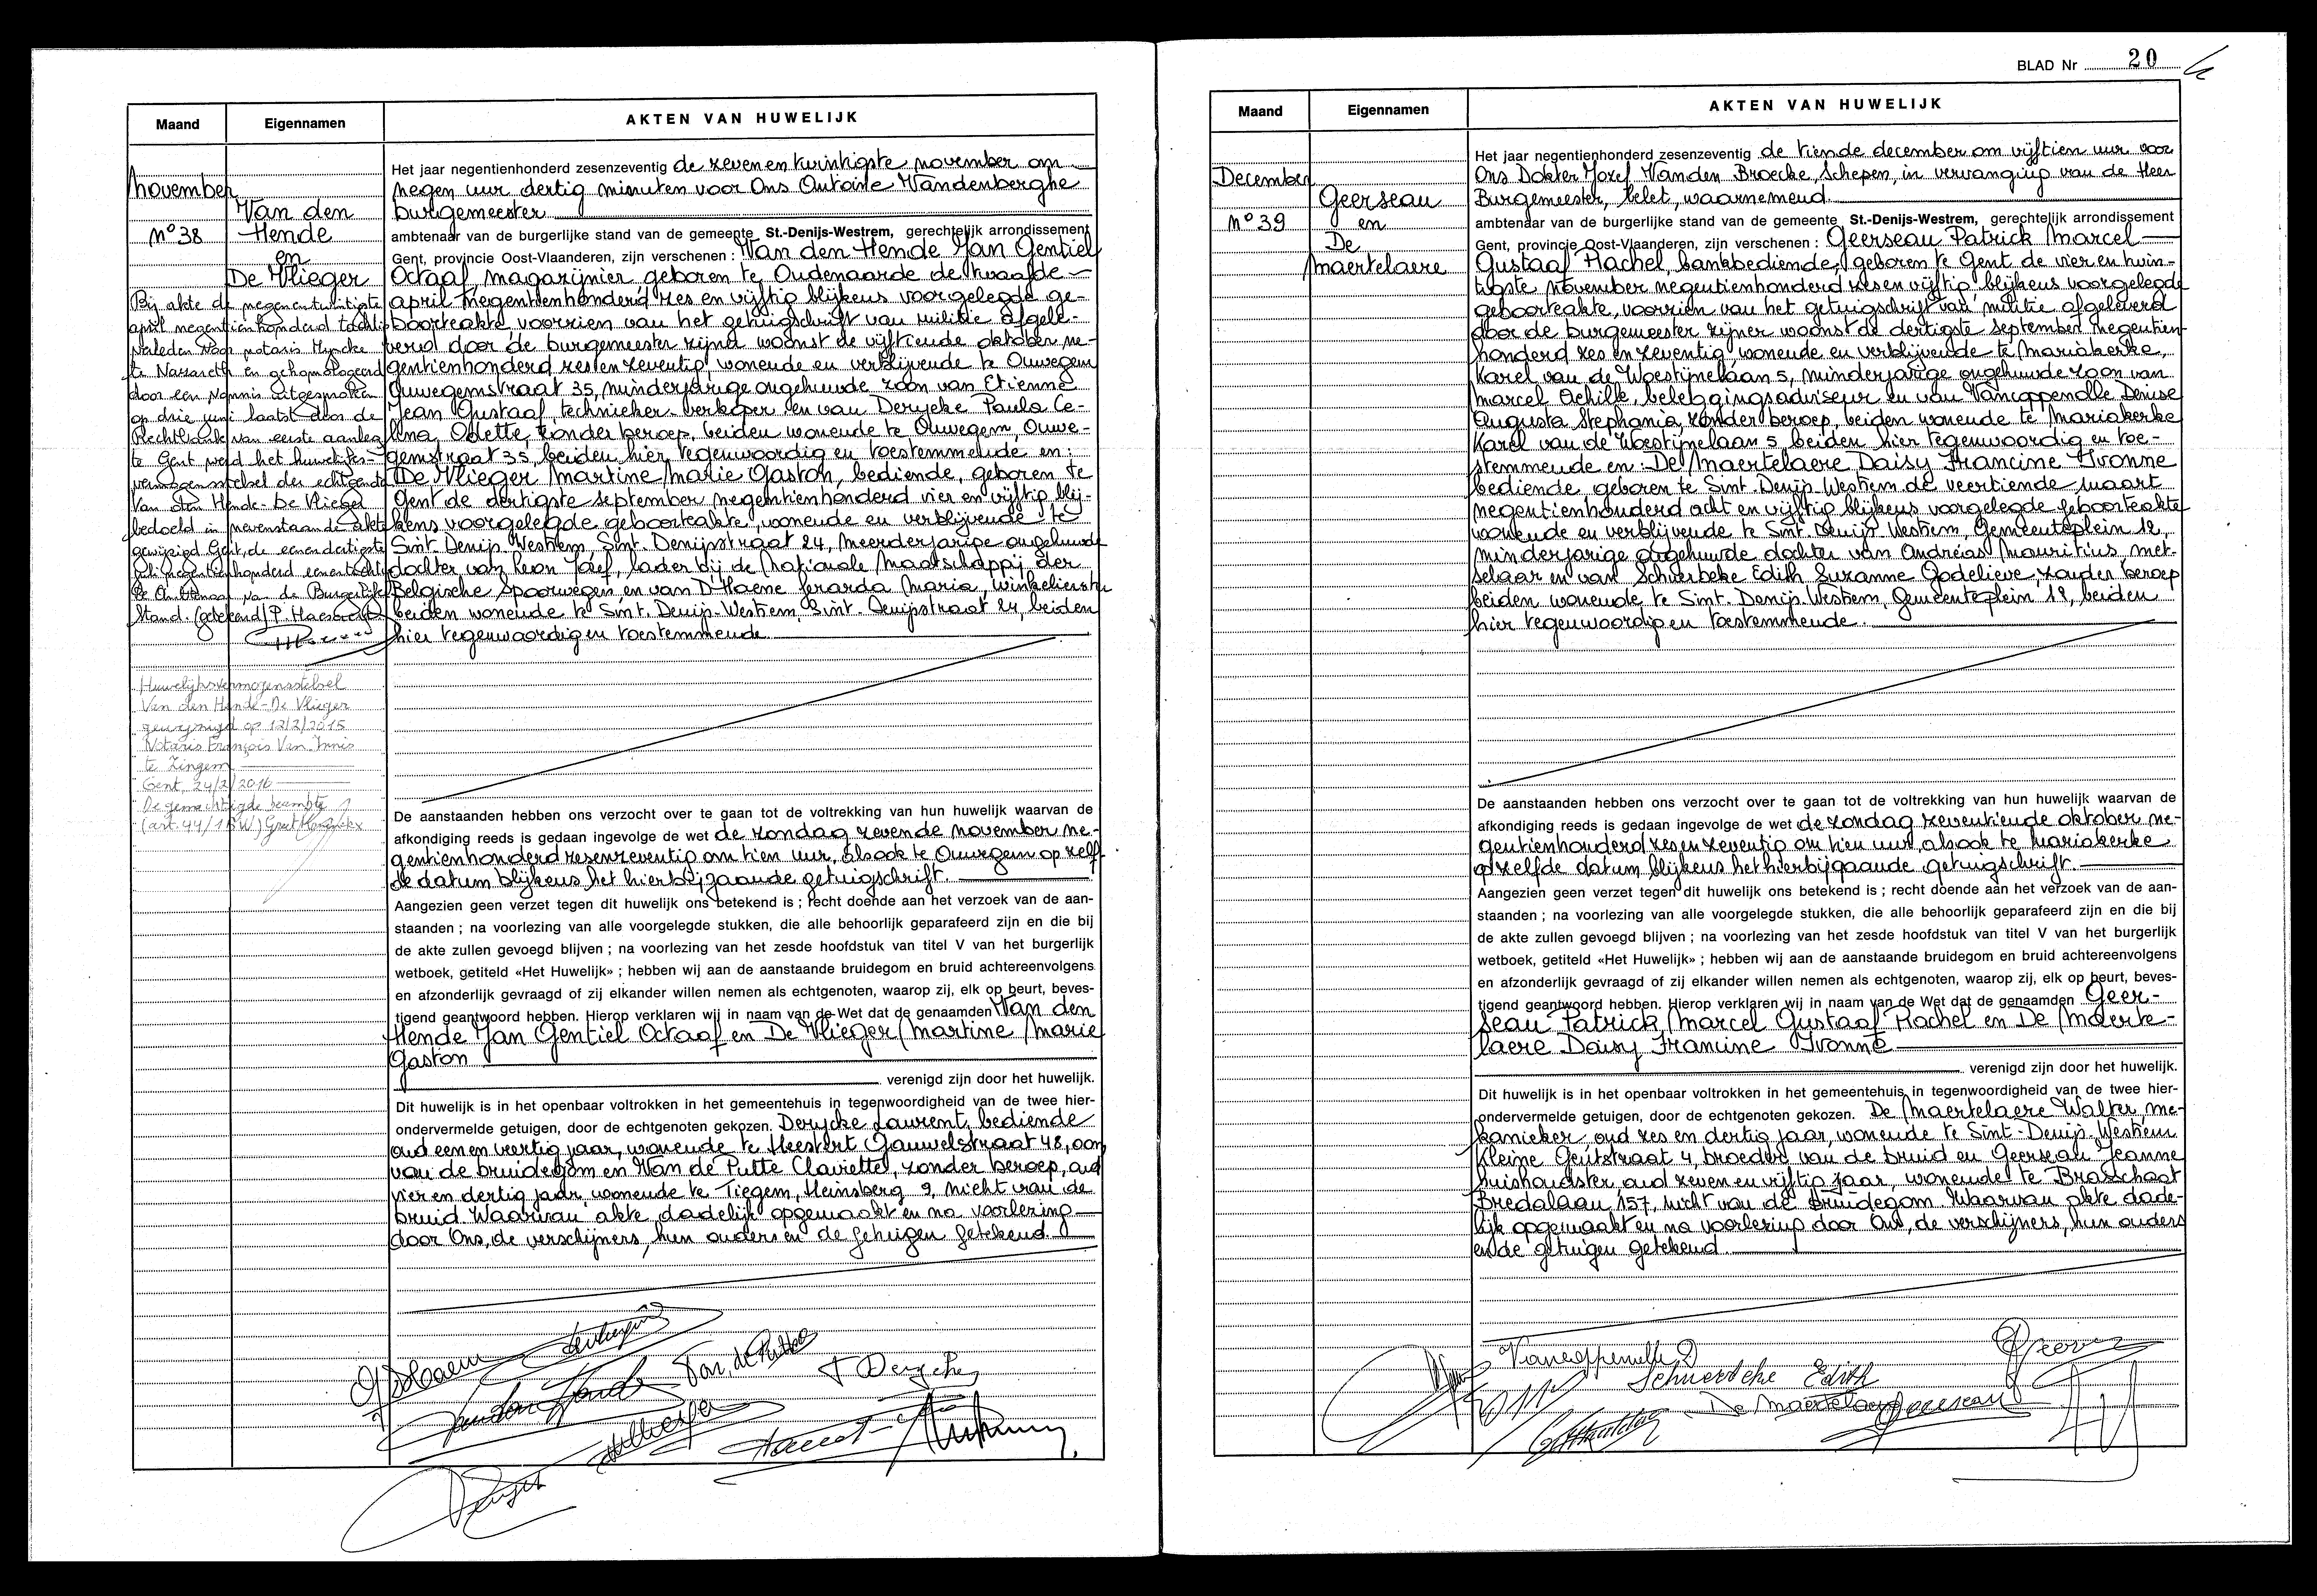 Maand
Eigennamen
AKTEN VAN HUWELIJK
november
N° 38
Van den
Hende
en
De Vlieger
Bij akte de negenentwintigste
april negentienhonderd tachtig
verleden voor notaris Hyncke
te Nazareth en gehomologeerd
door een vonnis uitgesproken
op drie juni laatst door de
Rechtbank van eerste aanleg
te Gent werd het huwelijks-
vermogensstelsel der echtgenoten
Van den Hende-De Vlieger
bedoeld in nevenstaande akte
gewijzigd Gent, de eenendertigste
juli negentienhonderd eenentachtig
De Ambtenaar van de Burgerlijke
Stand. (getekend) P. Haesaert
Huwelijksvermogensstelsel
Van den Hende-De Vlieger
gewijzigd op 12/2/2015
Notaris François Van Innis
te Zingem
Gent, 24/2/2016
De gemachtigde beambte
(art. 44/1 BW)
Het jaar negentienhonderd zesenzeventig de zevenentwintigste november om
negen uur dertig minuten voor Ons Antoine Vandenberghe
burgemeester
ambtenaar van de burgerlijke stand van de gemeente St.-Denijs-Westrem, gerechtelijk arrondissement
Gent, provincie Oost-Vlaanderen, zijn verschenen : Van den Hende Jan Gentiel
Octaaf, magazijnier geboren te Oudenaarde de twaalfde
april negentienhonderd zes en vijftig blijkens voorgelegde ge-
boorteakte voorzien van het getuigschrift van militie afgele-
verd door de burgemeester zijner woonst de vijftiende oktober ne-
gentienhonderd zes en zeventig wonende en verblijvende te Ouwegem
Ouwegemstraat 35, minderjarige ongehuwde zoon van Etienne
Jean Gustaaf, technieker verkoper en van Derycke Paula Ce-
lina, Odette, zonder beroep, beiden wonende te Ouwegem, Ouwe-
gemstraat 35, beiden hier tegenwoordig en toestemmende en:
De Vlieger Martine Marie Gaston, bediende, geboren te
Gent de dertigste september negentienhonderd vier en vijftig blij-
kens voorgelegde geboorteakte, wonende en verblijvende te
Sint-Denijs-Westrem, Sint-Denijsstraat 24, meerderjarige ongehuwde
dochter van Leon Jozef, lader bij de Nationale Maatschappij der
Belgische Spoorwegen en van D'Haene Gerarda Maria, winkelierster
beiden wonende te Sint-Denijs-Westrem, Sint-Denijsstraat 24, beiden
hier tegenwoordig en toestemmende
De aanstaanden hebben ons verzocht over te gaan tot de voltrekking van hun huwelijk waarvan de
afkondiging reeds is gedaan ingevolge de wet de zondag zevende november ne-
gentienhonderd zesenzeventig om tien uur, alsook te Ouwegem op zelf-
de datum blijkens het hierbijgaande getuigschrift.
Aangezien geen verzet tegen dit huwelijk ons betekend is ; recht doende aan het verzoek van de aan-
staanden ; na voorlezing van alle voorgelegde stukken, die alle behoorlijk geparafeerd zijn en die bij
de akte zullen gevoegd blijven ; na voorlezing van het zesde hoofdstuk van titel V van het burgerlijk
wetboek, getiteld «Het Huwelijk» ; hebben wij aan de aanstaande bruidegom en bruid achtereenvolgens
en afzonderlijk gevraagd of zij elkander willen nemen als echtgenoten, waarop zij, elk op beurt, beves-
tigend geantwoord hebben. Hierop verklaren wij in naam van de Wet dat de genaamden Van den
Hende Jan Gentiel Octaaf en De Vlieger Martine Marie
Gaston
verenigd zijn door het huwelijk.
Dit huwelijk is in het openbaar voltrokken in het gemeentehuis in tegenwoordigheid van de twee hier-
ondervermelde getuigen, door de echtgenoten gekozen. Derycke Laurent, bediende
oud een en veertig jaar, wonende te Heestert Gauwelstraat 48, oom
van de bruidegom en Van de Putte Claviette, zonder beroep, oud
vier en dertig jaar wonende te Tiegem, Heinsberg 9, nicht van de
bruid. Waarvan akte dadelijk opgemaakt en na voorlezing
door Ons, de verschijners, hun ouders en de getuigen getekend.
Van de Putte
Derycke
BLAD Nr 20
Maand
Eigennamen
AKTEN VAN HUWELIJK
December
N° 39
Geerseau
en
De
Maertelaere
Het jaar negentienhonderd zesenzeventig de tiende december om vijftien uur voor
Ons Dokter Jozef Vanden Broecke, Schepen, in vervanging van de Heer
Burgemeester, belet, waarnemend.
ambtenaar van de burgerlijke stand van de gemeente St.-Denijs-Westrem, gerechtelijk arrondissement
Gent, provincie Oost-Vlaanderen, zijn verschenen : Geerseau Patrick Marcel
Gustaaf Rachel, bankbediende, geboren te Gent de vier en twin-
tigste november negentienhonderd zes en vijftig blijkens voorgelegde
geboorteakte, voorzien van het getuigschrift van militie afgeleverd
door de burgemeester zijner woonst de dertigste september negentien-
honderd zes en zeventig wonende en verblijvende te Mariakerke,
Karel van de Woestijnelaan 5, minderjarige ongehuwde zoon van
Marcel Achille, beleggingsadviseur en van Vancoppenolle Denise
Augusta Stephania, zonder beroep, beiden wonende te Mariakerke
Karel van de Woestijnelaan 5 beiden hier tegenwoordig en toe-
stemmende en: De Maertelaere Daisy Francine Yvonne
bediende geboren te Sint-Denijs-Westrem de veertiende maart
negentienhonderd acht en vijftig blijkens voorgelegde geboorteakte
wonende en verblijvende te Sint-Denijs-Westrem, Gemeenteplein 12,
minderjarige ongehuwde dochter van Andreas Mauritius, met-
selaar en van Schuerbeke Edith Suzanne Godelieve, zonder beroep
beiden wonende te Sint-Denijs-Westrem, Gemeenteplein 12, beiden
hier tegenwoordig en toestemmende.
De aanstaanden hebben ons verzocht over te gaan tot de voltrekking van hun huwelijk waarvan de
afkondiging reeds is gedaan ingevolge de wet de zondag zeventiende oktober ne-
gentienhonderd zes en zeventig om tien uur, alsook te Mariakerke
op zelfde datum blijkens het hierbijgaande getuigschrift.
Aangezien geen verzet tegen dit huwelijk ons betekend is ; recht doende aan het verzoek van de aan-
staanden ; na voorlezing van alle voorgelegde stukken, die alle behoorlijk geparafeerd zijn en die bij
de akte zullen gevoegd blijven ; na voorlezing van het zesde hoofdstuk van titel V van het burgerlijk
wetboek, getiteld «Het Huwelijk» ; hebben wij aan de aanstaande bruidegom en bruid achtereenvolgens
en afzonderlijk gevraagd of zij elkander willen nemen als echtgenoten, waarop zij, elk op beurt, beves-
tigend geantwoord hebben. Hierop verklaren wij in naam van de Wet dat de genaamden Geer-
seau Patrick Marcel Gustaaf Rachel en De Maerte-
laere Daisy Francine Yvonne
verenigd zijn door het huwelijk.
Dit huwelijk is in het openbaar voltrokken in het gemeentehuis in tegenwoordigheid van de twee hier-
ondervermelde getuigen, door de echtgenoten gekozen. De Maertelaere Walter, me-
kanieker oud zes en dertig jaar, wonende te Sint-Denijs-Westrem
Kleine Geutstraat 4, broeder van de bruid en Geerseau Jeanne
huishoudster oud zeven en vijftig jaar, wonende te Brasschaat
Bredalaan 157, nicht van de bruidegom. Waarvan akte dade-
lijk opgemaakt en na voorlezing door Ons, de verschijners, hun ouders
en de getuigen getekend
Vancoppenolle D
Schuerbeke Edith
De Maertelaere
Geerseau